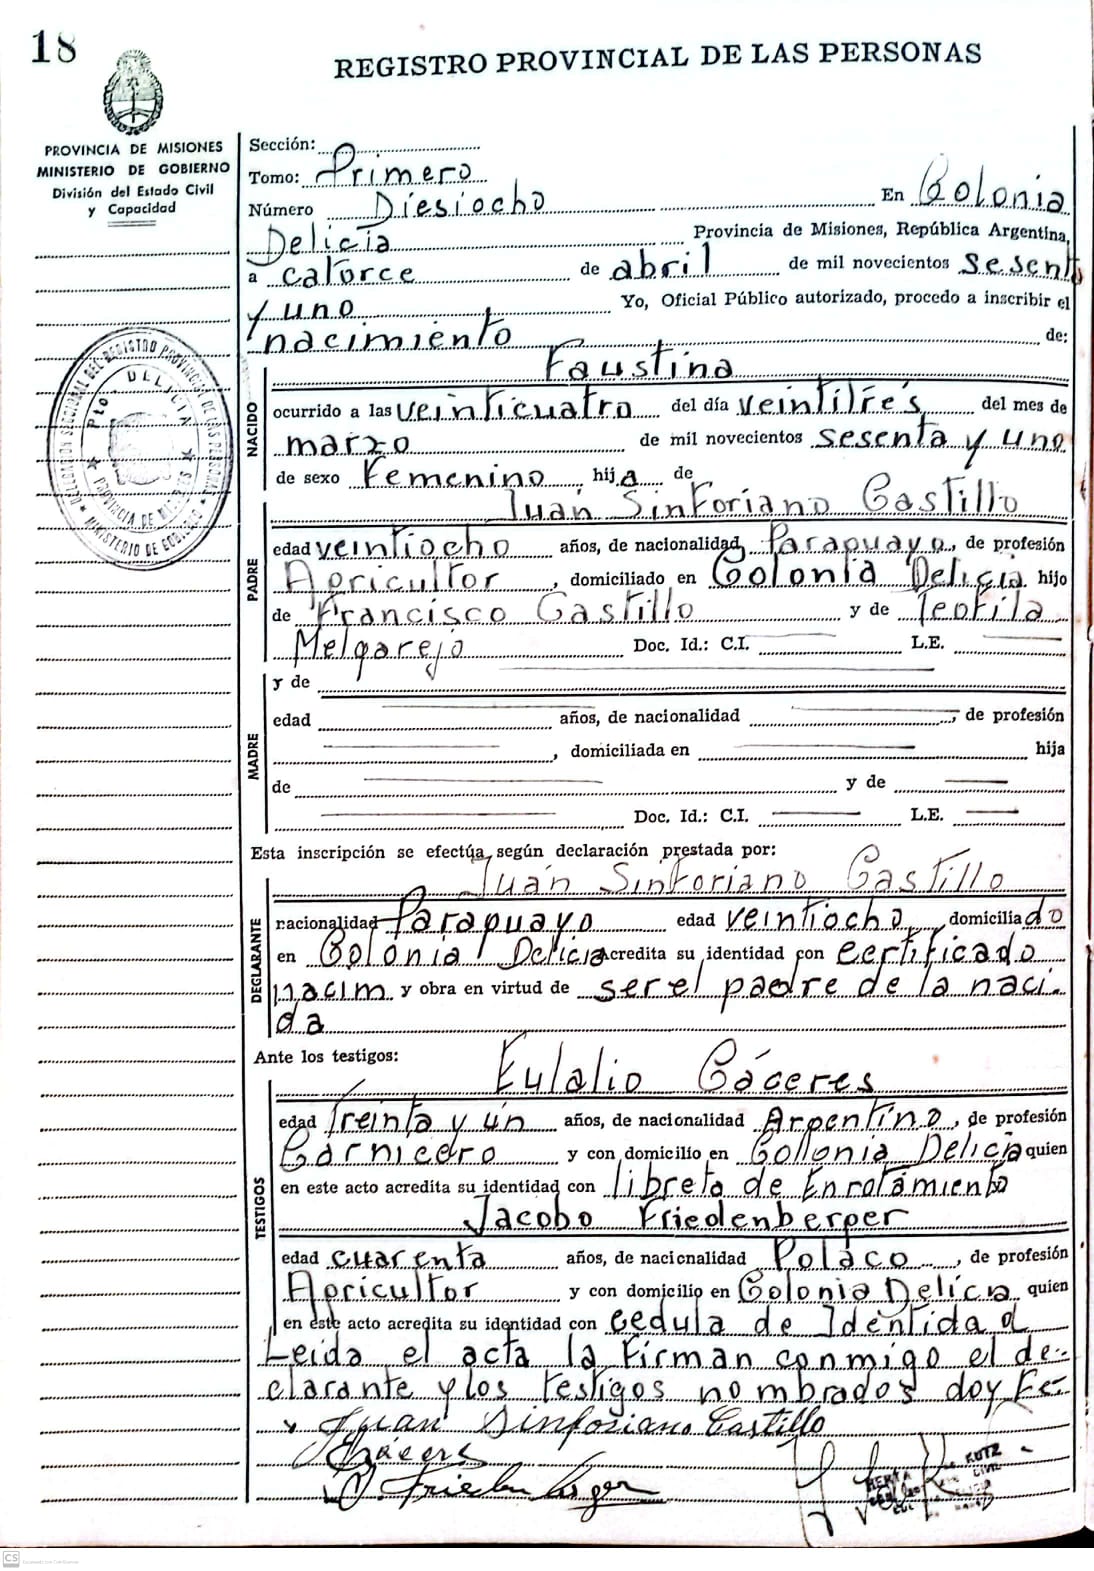 18
REGISTRO PROVINCIAL DE LAS PERSONAS
PROVINCIA DE MISIONES
MINISTERIO DE GOBIERNO
División del Estado Civil
y Capacidad
Sección:
Tomo: Primero
Número Diesiocho En Colonia
Delicia Provincia de Misiones, República Argentina,
a catorce de abril de mil novecientos sesenta
y uno Yo, Oficial Público autorizado, procedo a inscribir el
nacimiento de:
DELEGACION SECCIONAL DEL REGISTRO PROVINCIAL DE LAS PERSONAS
Pto. DELICIA
PROVINCIA DE MISIONES
MINISTERIO DE GOBIERNO
NACIDO
Faustina
ocurrido a las veinticuatro del día veintitrés del mes de
marzo de mil novecientos sesenta y uno
de sexo Femenino hija de
PADRE
Juán Sinforiano Castillo
edad veintiocho años, de nacionalidad Paraguayo, de profesión
Agricultor, domiciliado en Colonia Delicia hijo
de Francisco Castillo y de Teofila
Melgarejo Doc. Id.: C.I. L.E.
MADRE
y de
edad años, de nacionalidad , de profesión
, domiciliada en hija
de y de
Doc. Id.: C.I. L.E.
Esta inscripción se efectúa según declaración prestada por:
DECLARANTE
Juán Sinforiano Castillo
nacionalidad Paraguayo edad veintiocho, domiciliado
en Colonia Delicia acredita su identidad con certificado
nacim y obra en virtud de ser el padre de la naci-
da
Ante los testigos:
TESTIGOS
Eulalio Cáceres
edad treinta y un años, de nacionalidad Argentino, de profesión
Carnicero y con domicilio en Collonia Delicia quien
en este acto acredita su identidad con libreta de Enrolamiento
Jacobo Friedenberger
edad cuarenta años, de nacionalidad Polaco, de profesión
Agricultor y con domicilio en Colonia Delicia quien
en este acto acredita su identidad con cedula de Identidad
Leida el acta la firman conmigo el de-
clarante y los testigos nombrados doy Fé-
Juan Sinforiano Castillo
Cáceres
J. Friedenberger
KUTZ
CS